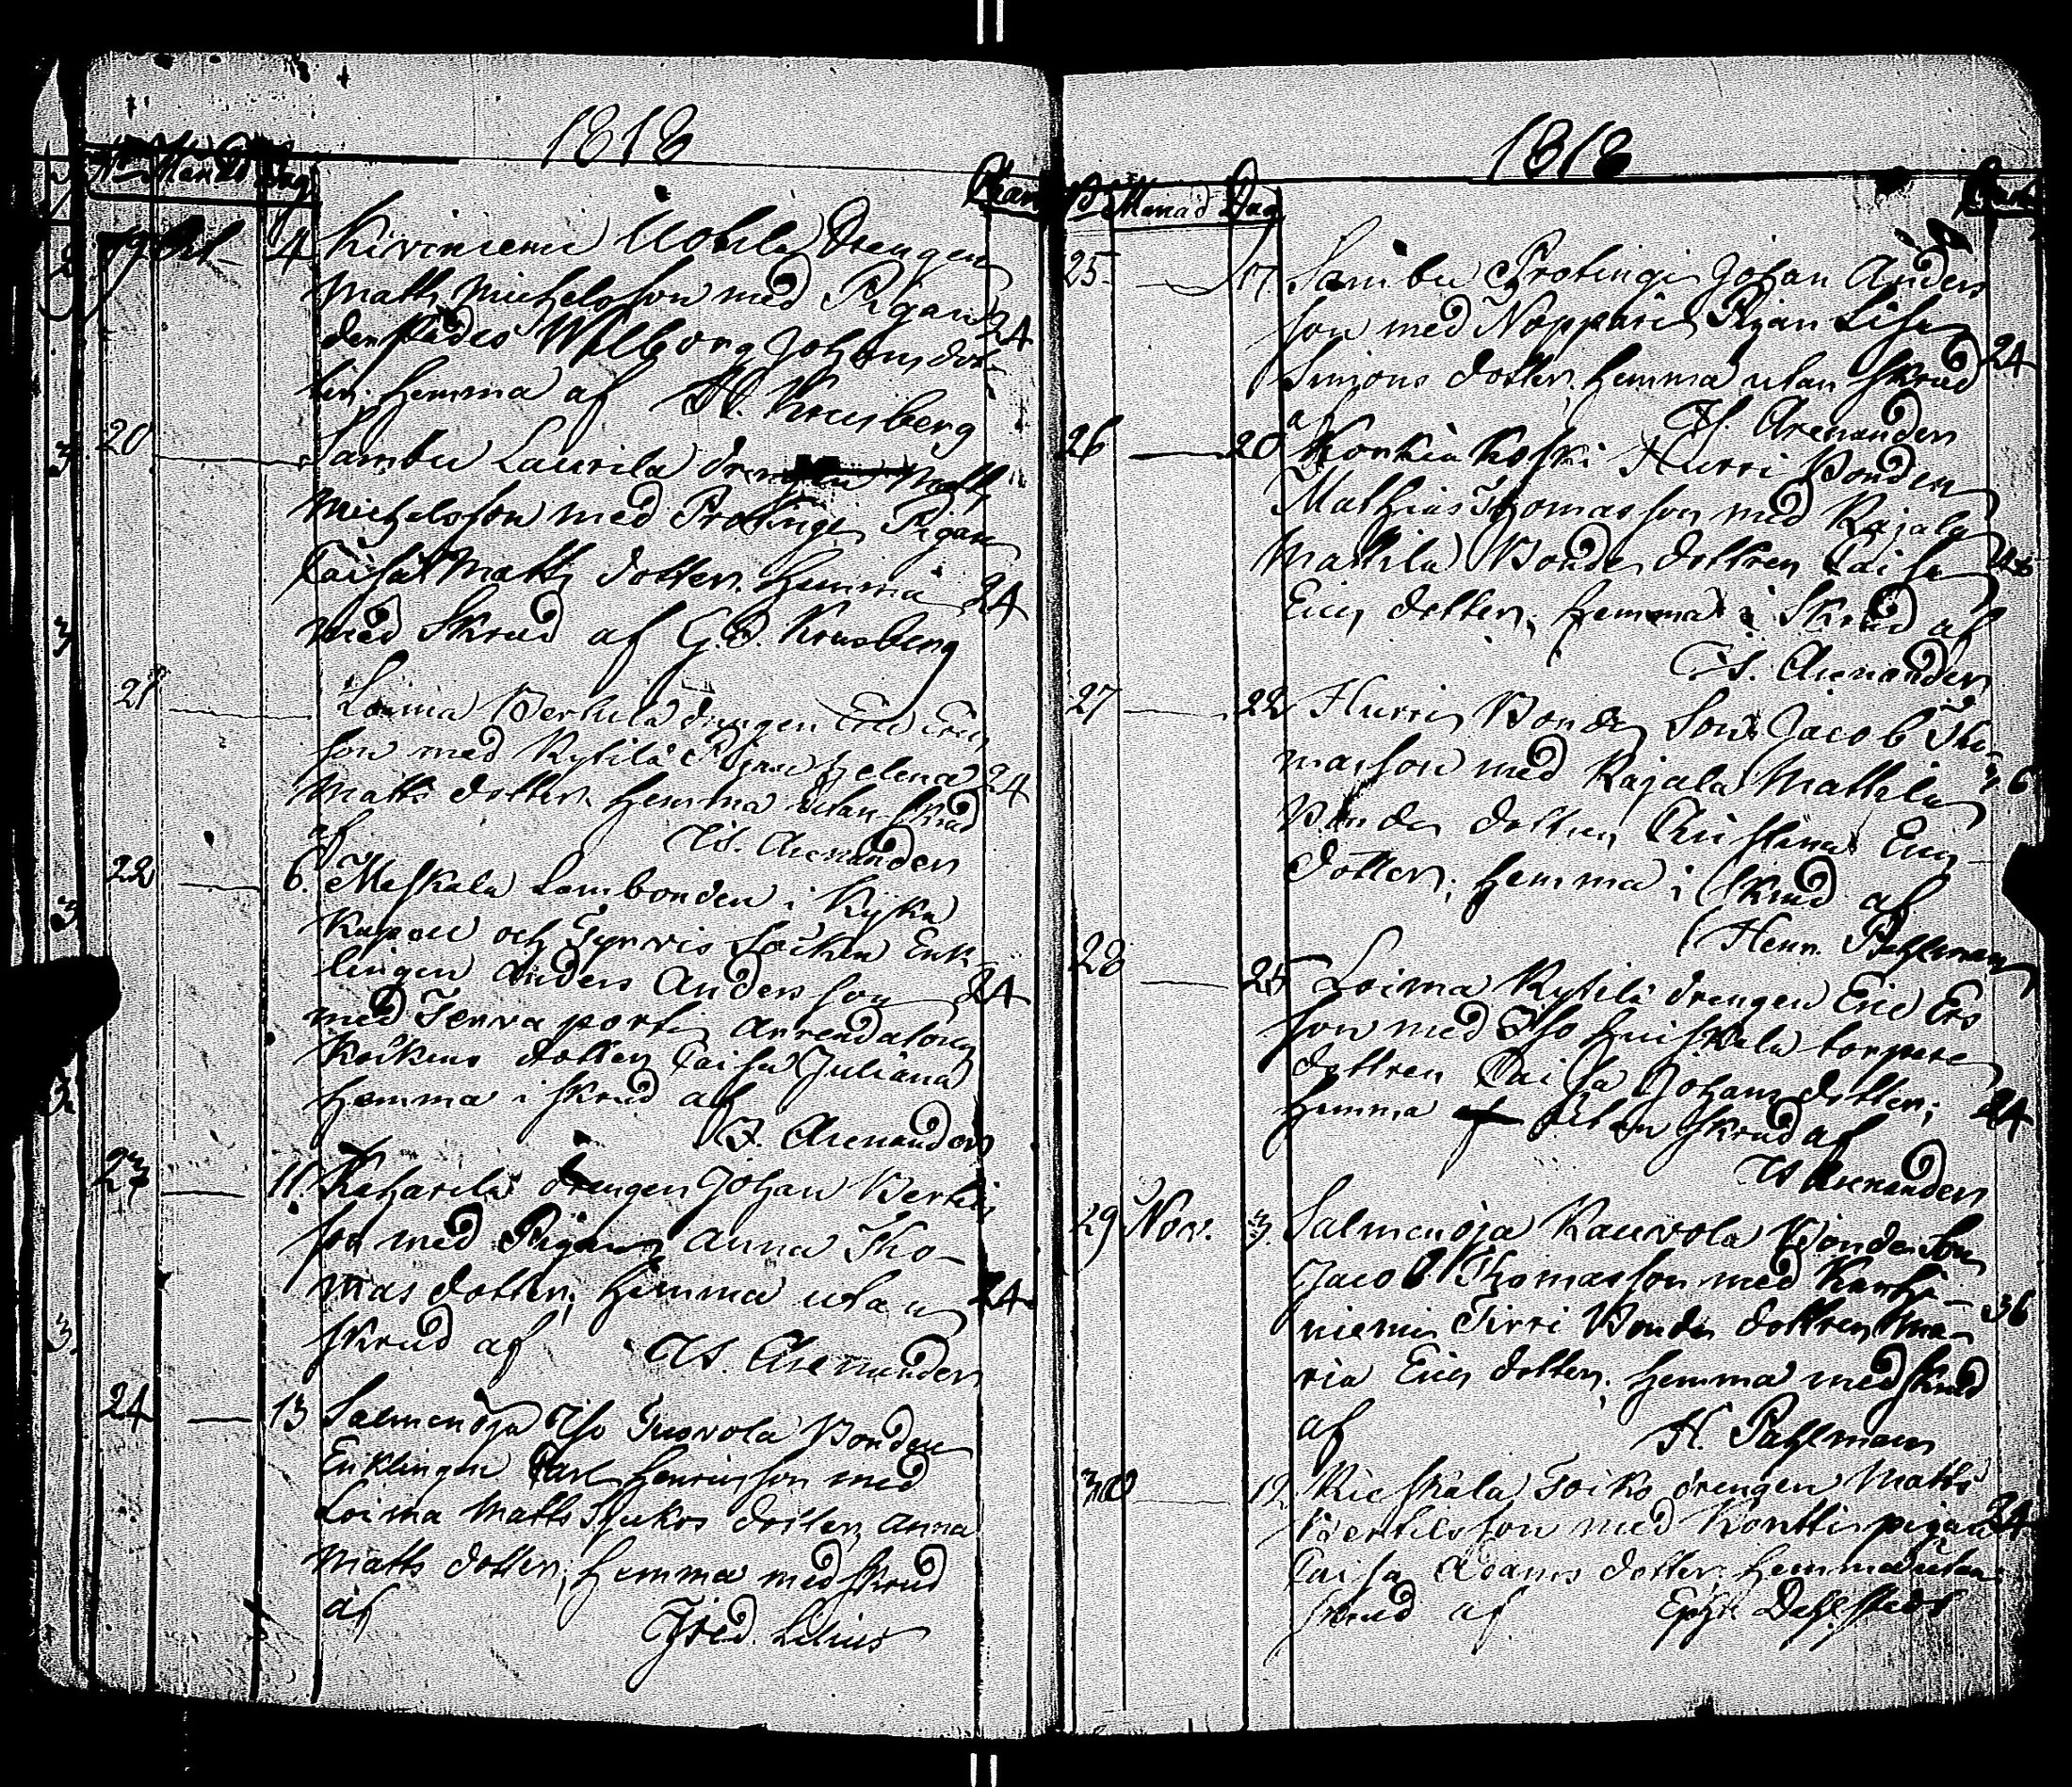 1818
No Månad Dag
19 Oct. 4. Kiviniemi Uotila Drengen
Matts Michelsson med Pigan
derstädes Walborg Johans dot-
ter. hemma af H. Krusberg
24
20 Sambu Laurila drengen Matts
Michelsson med Protinge Pigan
Caisa Matts dotter. hemma 24
med Skrud af G. B. Krusberg
21 Loima Bertula drengen Eric Erics
son med Kytilä Pigan Helena 24
Matts dotter. hemma utan skrud
af Is. Arenander
22 6. Maskala bonden i Kyrö
och Tyrvis Socken Enk-
lingen Anders Anders son 24
med Tervaporti Arrendatorn
dotter Caisa Juliana
hemma i skrud af
Is. Arenander
23 11. Keharila drengen Johan Bertils
son med Pigan Anna Tho-
mas dotter; hemma utan 24
skrud af Is. Arenander
24 13 Salmenoja Iso Tuovola Bonden
Enklingen Carl Henricsson med
Loima Matts dotter Anna
Matts dotter; hemma med skrud
af Fred. Lilius
1818
No Månad Dag
25 17 Sambu Protinge Johan Anders
son med Noppari Pigan Lisa
Simons dotter. hemma utan skrud 24
af Is. Arenander
26 20 Konkia Koski Hurri Bonden
Mathias Thomasson med Rajala
Mattila Bonde dottren Caisa 48
Erics dotter; hemma i Skrud af
Is. Arenander
27 22 Hurri Bonde Son Jacob Tho-
masson med Rajala Mattila 36
Bonde dottren Christina Erics
dotter; hemma i skrud af
Henr. Pahlman
28 25 Loima Kytilä drengen Eric Ers
son med Iso Huiskala torpare
dottren Caisa Johans dotter;
hemma utan skrud af 24
Is. Arenander
29 Nov. 3. Salmenoja Kauvola Bonde Son
Jacob Thomasson med Karhi-
niemi Tirri Bonde dottren Ma- 36
ria Erics dotter. hemma med skrud
af H. Pahlman
30 12. Rieskala Toiko drengen Matts
Bertilsson med Kontti pigan 24
Caisa Adams dotter. hemma utan
skrud af Ephr. Dahlstedt